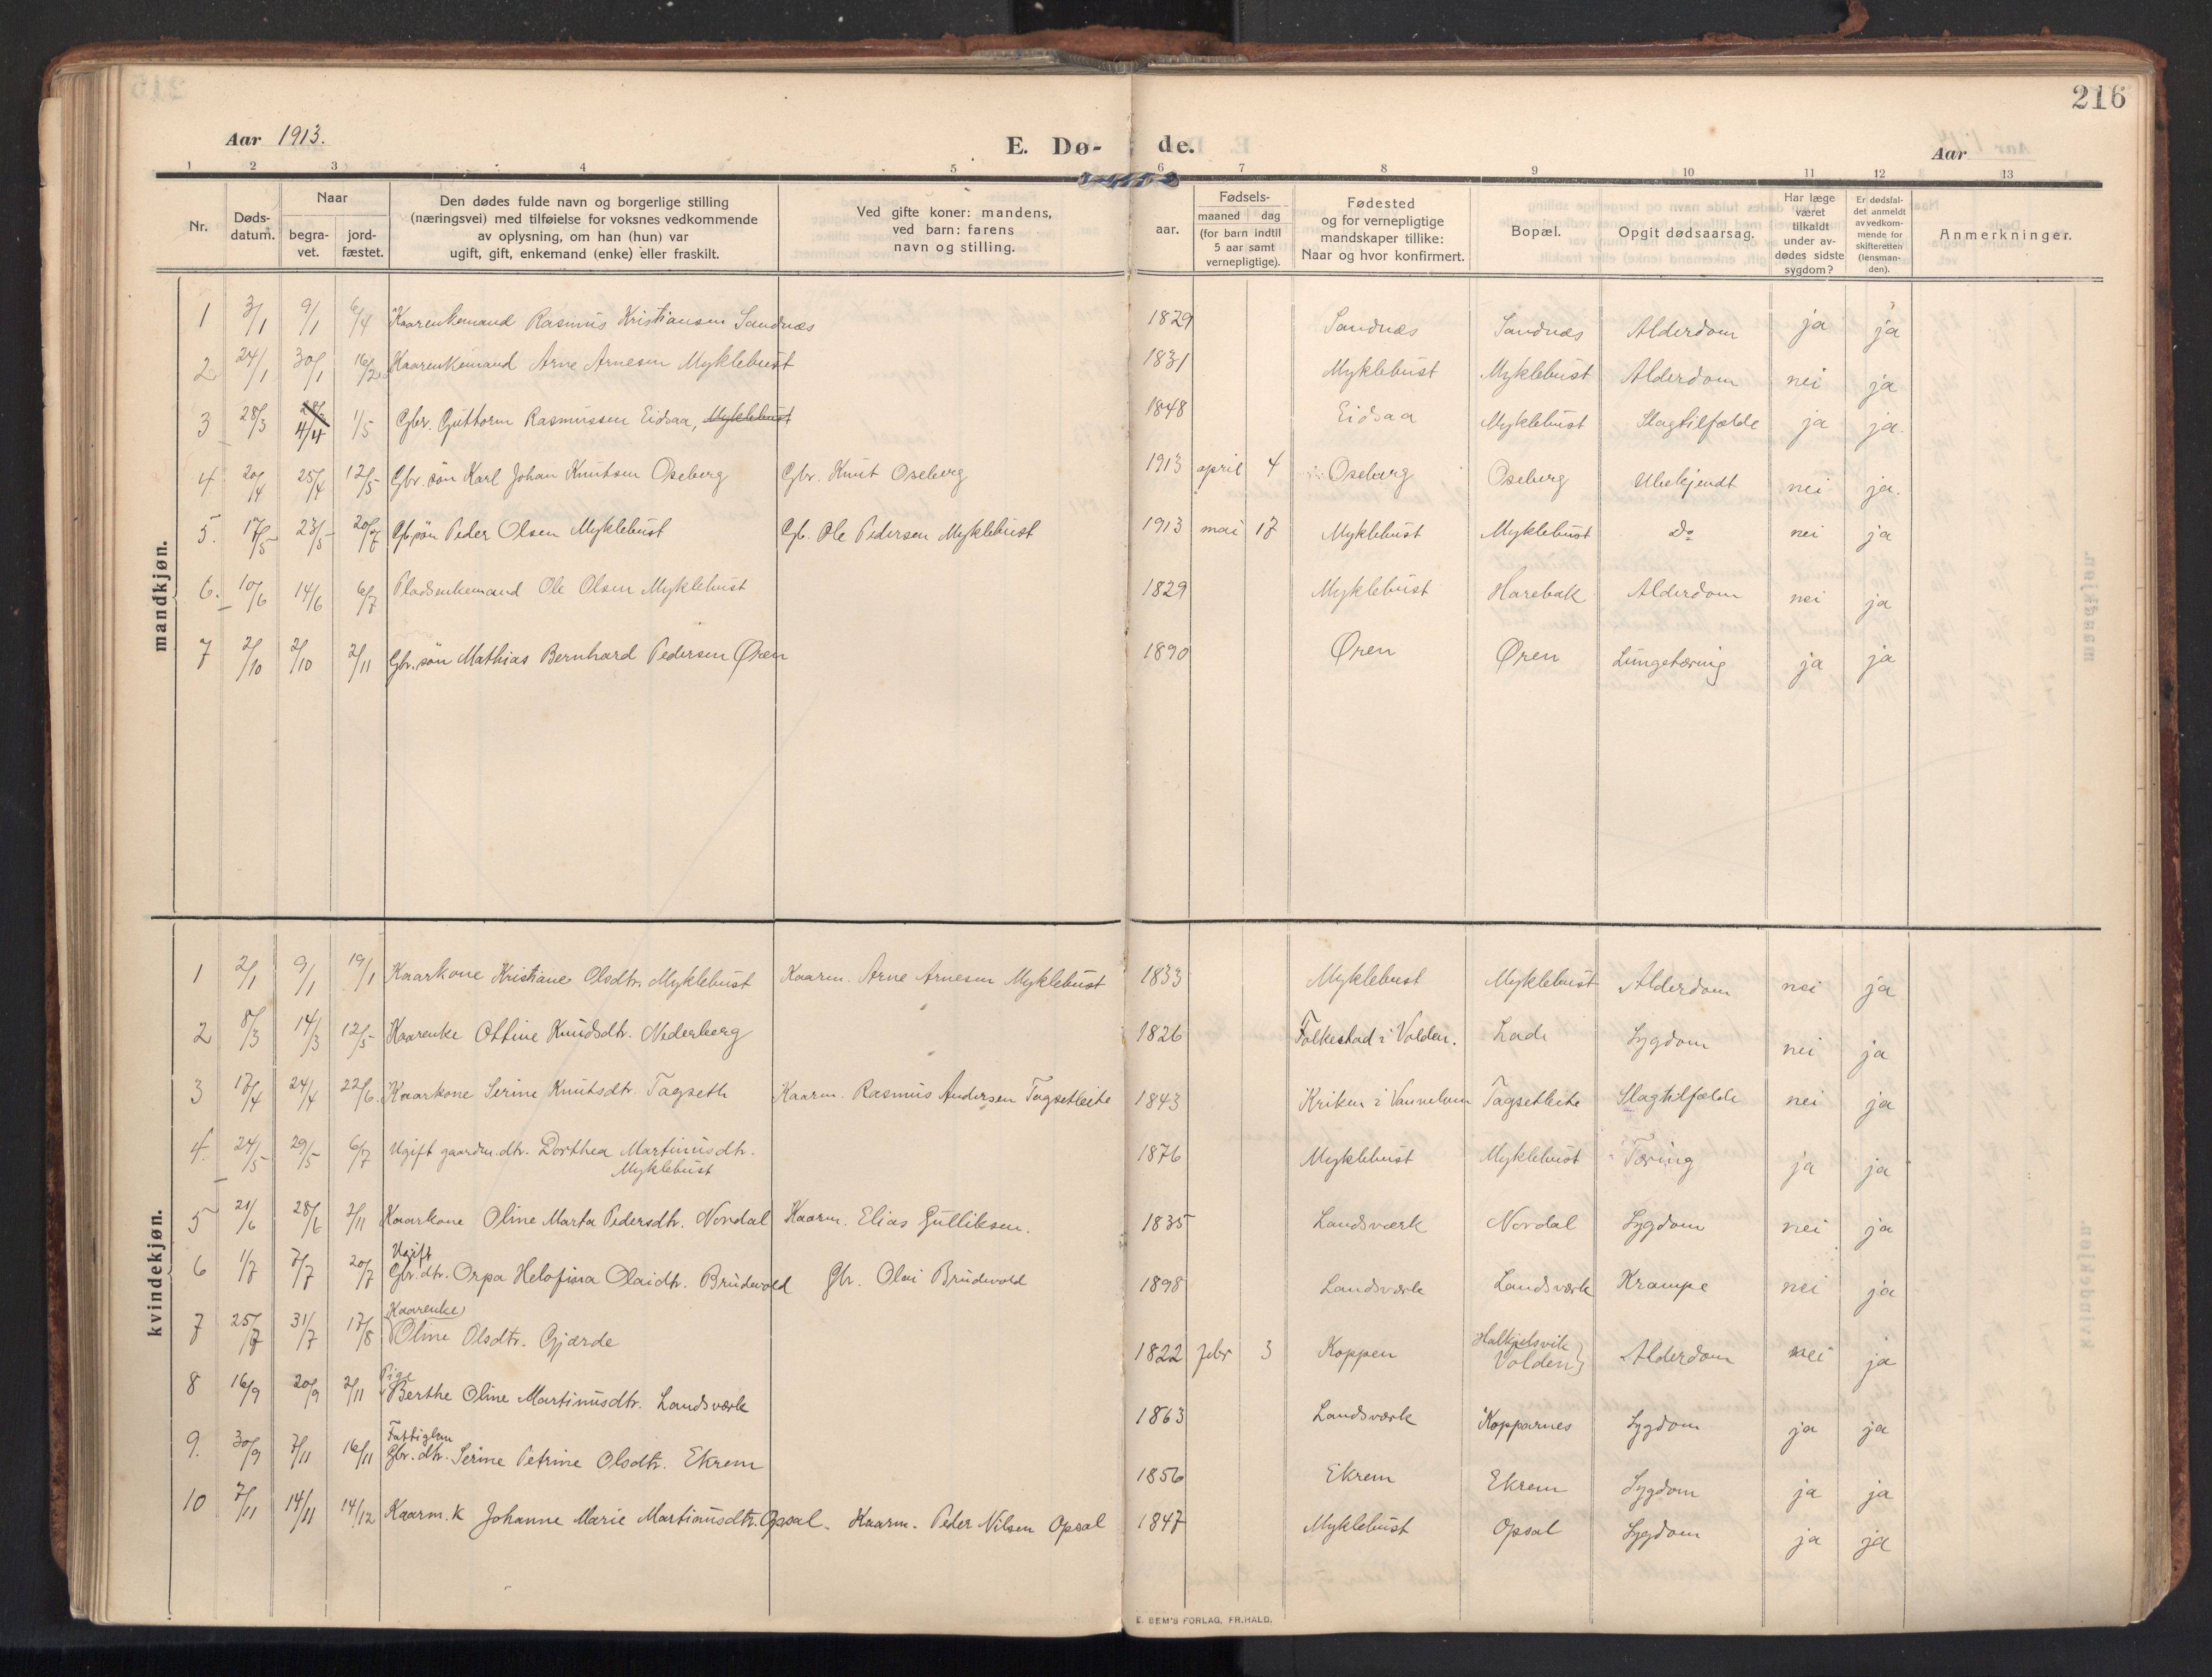 216
Aar 1913.
E. Dø- de.
Aar
1 2 3 4 5 6 7 8 9 10 11 12 13
Nr.
Døds-
datum.
Naar
begra-
vet.
jord-
fæstet.
Den dødes fulde navn og borgerlige stilling
(næringsvei) med tilføielse for voksnes vedkommende
av oplysning, om han (hun) var
ugift, gift, enkemand (enke) eller fraskilt.
Ved gifte koner: mandens,
ved barn: farens
navn og stilling.
aar.
Fødsels-
maaned dag
(for barn indtil
5 aar samt
vernepligtige).
Fødested
og for vernepligtige
mandskaper tillike:
Naar og hvor konfirmert.
Bopæl.
Opgit dødsaarsag.
Har læge
været
tilkaldt
under av-
dødes sidste
sygdom?
Er dødsfal-
det anmeldt
av vedkom-
mende for
skifteretten
(lensman-
den).
Anmerkninger.
mandkjøn.
1 3/1 9/1 6/4 Kaarenkemand Rasmus Kristiansen Sandnæs 1829 Sandnæs Sandnæs Alderdom ja ja
2 24/1 30/1 16/2 Kaarenkemand Arne Arnesen Myklebust 1831 Myklebust Myklebust Alderdom nei ja
3 28/3 4/4 1/5 Gbr. Guttorm Rasmussen Eidsaa, Myklebust 1848 Eidsaa Myklebust Slagtilfælde ja ja.
4 20/4 25/4 12/5 Gbr. søn Karl Johan Knutsen Oseberg Gbr. Knut Oseberg 1913 april 4 Oseberg Oseberg Ubekjendt nei ja.
5. 17/5 23/5 20/7 Gb. søn Peder Olsen Myklebust Gb. Ole Pedersen Myklebust 1913 mai 17 Myklebust Myklebust Do nei ja
6. 10/6 14/6 6/7 Pladsenkemand Ole Olsen Myklebust 1829 Myklebust Harebak Alderdom nei ja
7 2/10 2/10 2/11 Gbr. søn Mathias Bernhard Pedersen Øren 1890 Øren Øren Lungetæring ja ja
kvindekjøn.
1 2/1 9/1 19/1 Kaarkone Kristiane Olsdtr. Myklebust Kaarm. Arne Arnesen Myklebust 1833 Myklebust Myklebust Alderdom nei ja
2 8/3 14/3 12/5 Kaarenke Ottine Knudsdtr. Nederberg 1826 Folkestad i Volden. Lade Sygdom nei ja
3 17/4 24/4 22/6. Kaarkone Serine Knutsdtr. Tagseth Kaarm. Rasmus Andersen Tagsetleite 1843 Kriken i Tagsetleite Slagtilfælde nei ja
4. 24/5 29/5 6/7 Ugift gaardm. dtr. Dorthea Martinusdtr.
Myklebust 1876 Myklebust Myklebust Tæring ja ja
5 21/6 28/6 2/11 Kaarkone Oline Marta Pedersdtr. Nordal Kaarm. Elias Gulliksen. 1835 Landsværk Nordal Sygdom nei ja
Ugift
6 1/7 7/7 20/7 Gbr. dtr. Orpa Helofina Olaidtr. Brudevold Gbr. Olai Brudevold 1898 Landsværk Landsværk Krampe nei ja
Kaarenke
7 25/7 31/7 17/8 Oline Olsdtr. Gjærde 1822 febr 3 Koppen Halkjelsvik
Volden Alderdom nei ja
Pige
8 16/9 20/9 2/11 Berthe Oline Martinusdtr. Landsværk 1863 Landsværk Kopparnes Sygdom ja ja
Fattiglem
9. 30/9 7/11 16/11 Gbr. dtr. Serine Petrine Olsdtr. Ekrem 1856 Ekrem Ekrem Sygdom ja ja
10 7/11 14/11 14/12 Kaarm. k Johanne Marie Martinusdtr. Opsal. Kaarm. Peder Nilsen Opsal 1847 Myklebust Opsal Sygdom ja ja
E. SEM'S FORLAG, FR.HALD.